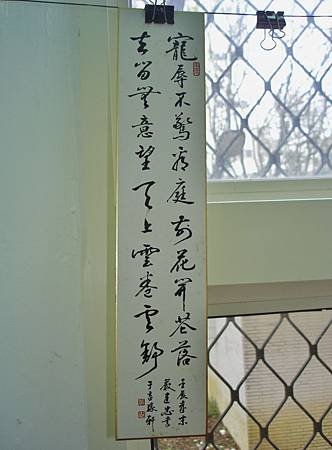 寵辱不驚看庭前花開花落
去留無意望天上雲卷雲舒
壬辰春末
嚴建忠書